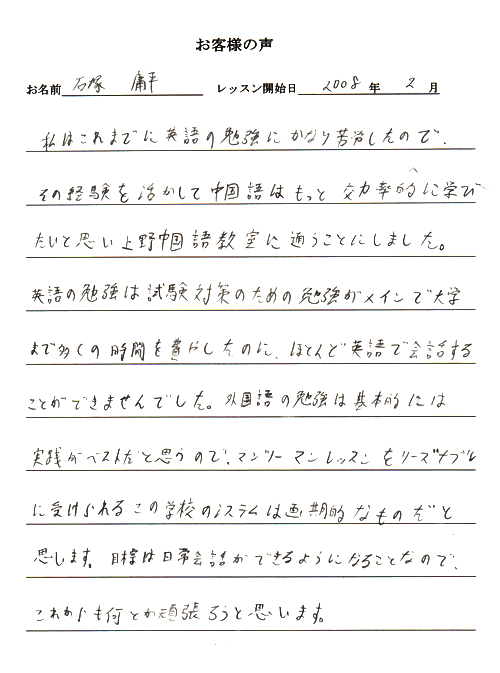 お客様の声
お名前 石塚 庸平 レッスン開始日 2008 年 2 月
私はこれまでに英語の勉強にかなり苦労したので、
その経験を活かして中国語はもっと効率的に学び
たいと思い上野中国語教室に通うことにしました。
英語の勉強は試験対策のための勉強がメインで大学
まで多くの時間を費やしたのに、ほとんど英語で会話する
ことができませんでした。外国語の勉強は基本的には
実践がベストだと思うので、マンツーマンレッスンをリーズナブル
に受けられるこの学校のシステムは画期的なものだと
思します。目標は日常会話ができるようになることなので、
これからも何とか頑張ろうと思います。